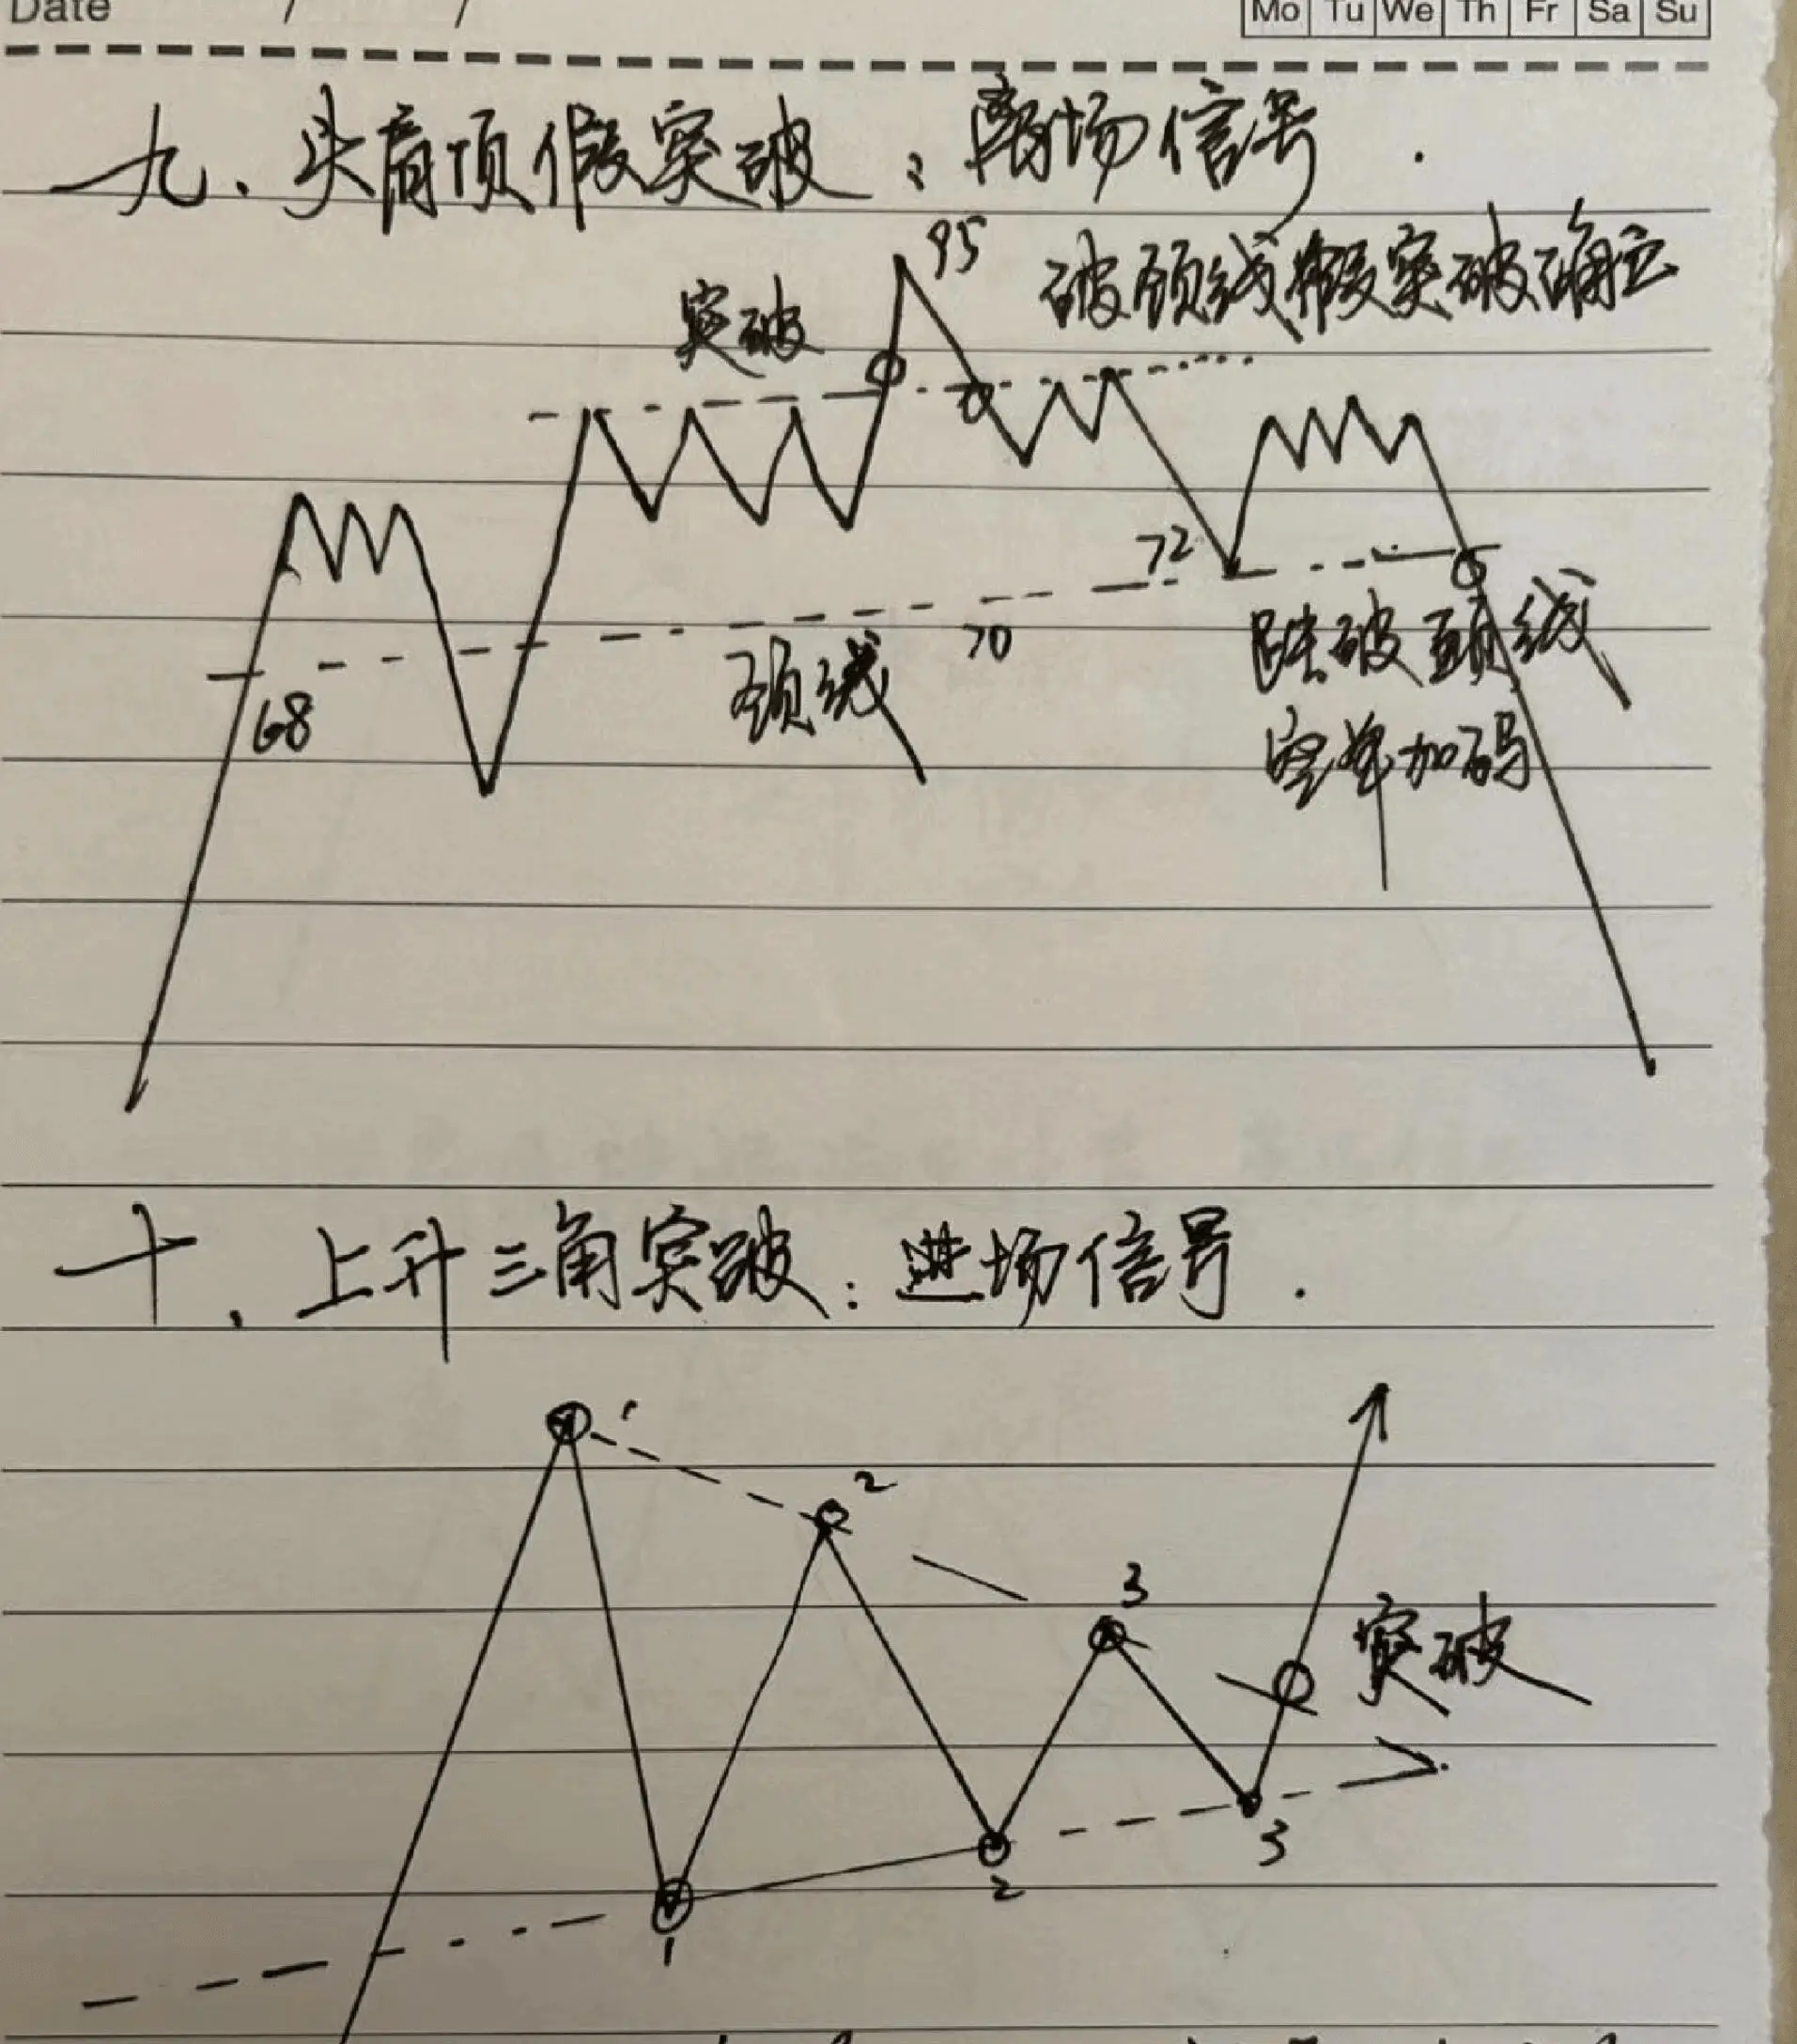 Date / /
Mo Tu We Th Fr Sa Su
九、头肩顶假突破：离场信号.
95
突破
破颈线假突破确立
72
70
颈线
68
跌破颈线
空单加码
十、上升三角突破：进场信号.
1
2
3
突破
3
2
1